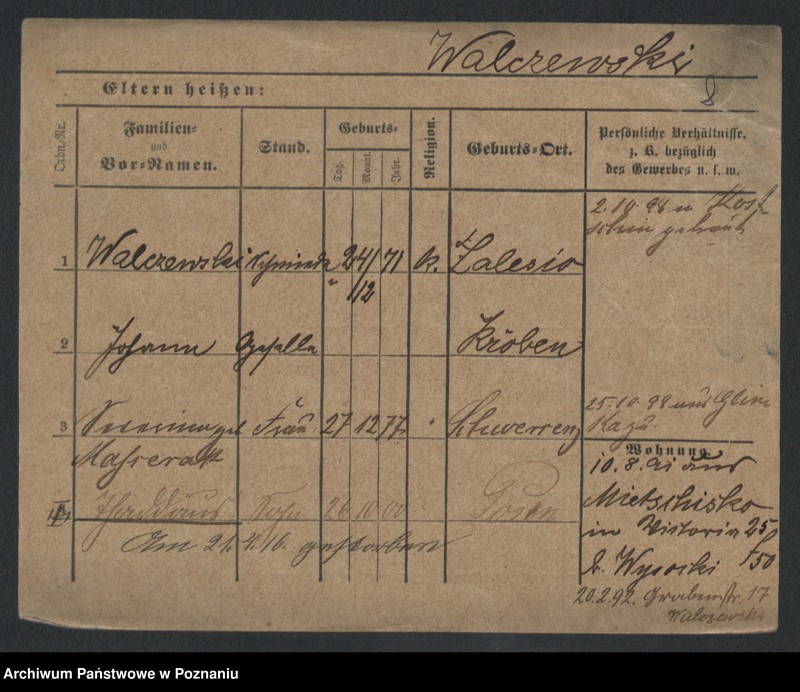 Walczewski
Eltern heißen:
Ordn.-Nr.
Familien-
und
Vor-Namen.
Stand.
Geburts-
Tag.
Monat.
Jahr.
Religion.
Geburts-Ort.
Persönliche Verhältnisse,
z. B. bezüglich
des Gewerbes u. s. w.
2.10.98 Kost-
schin getraut
1 Walczewski Schmiede 24/ 71 k. Zalesio
" /12
2 Johann Geselle Kröben
25.10.98 aus
3 Frau 27 12 77 " Schwersenz
Wohnung.
10.8.91 aus
Mietschisko
4 Thaddäus Sohn 26 10 00 Posen
in Victoria 25
Am 21. 4. 16. gestorben
b. Wysocki
20.2.92. Grabenstr. 17
Walczewski
Archiwum Państwowe w Poznaniu